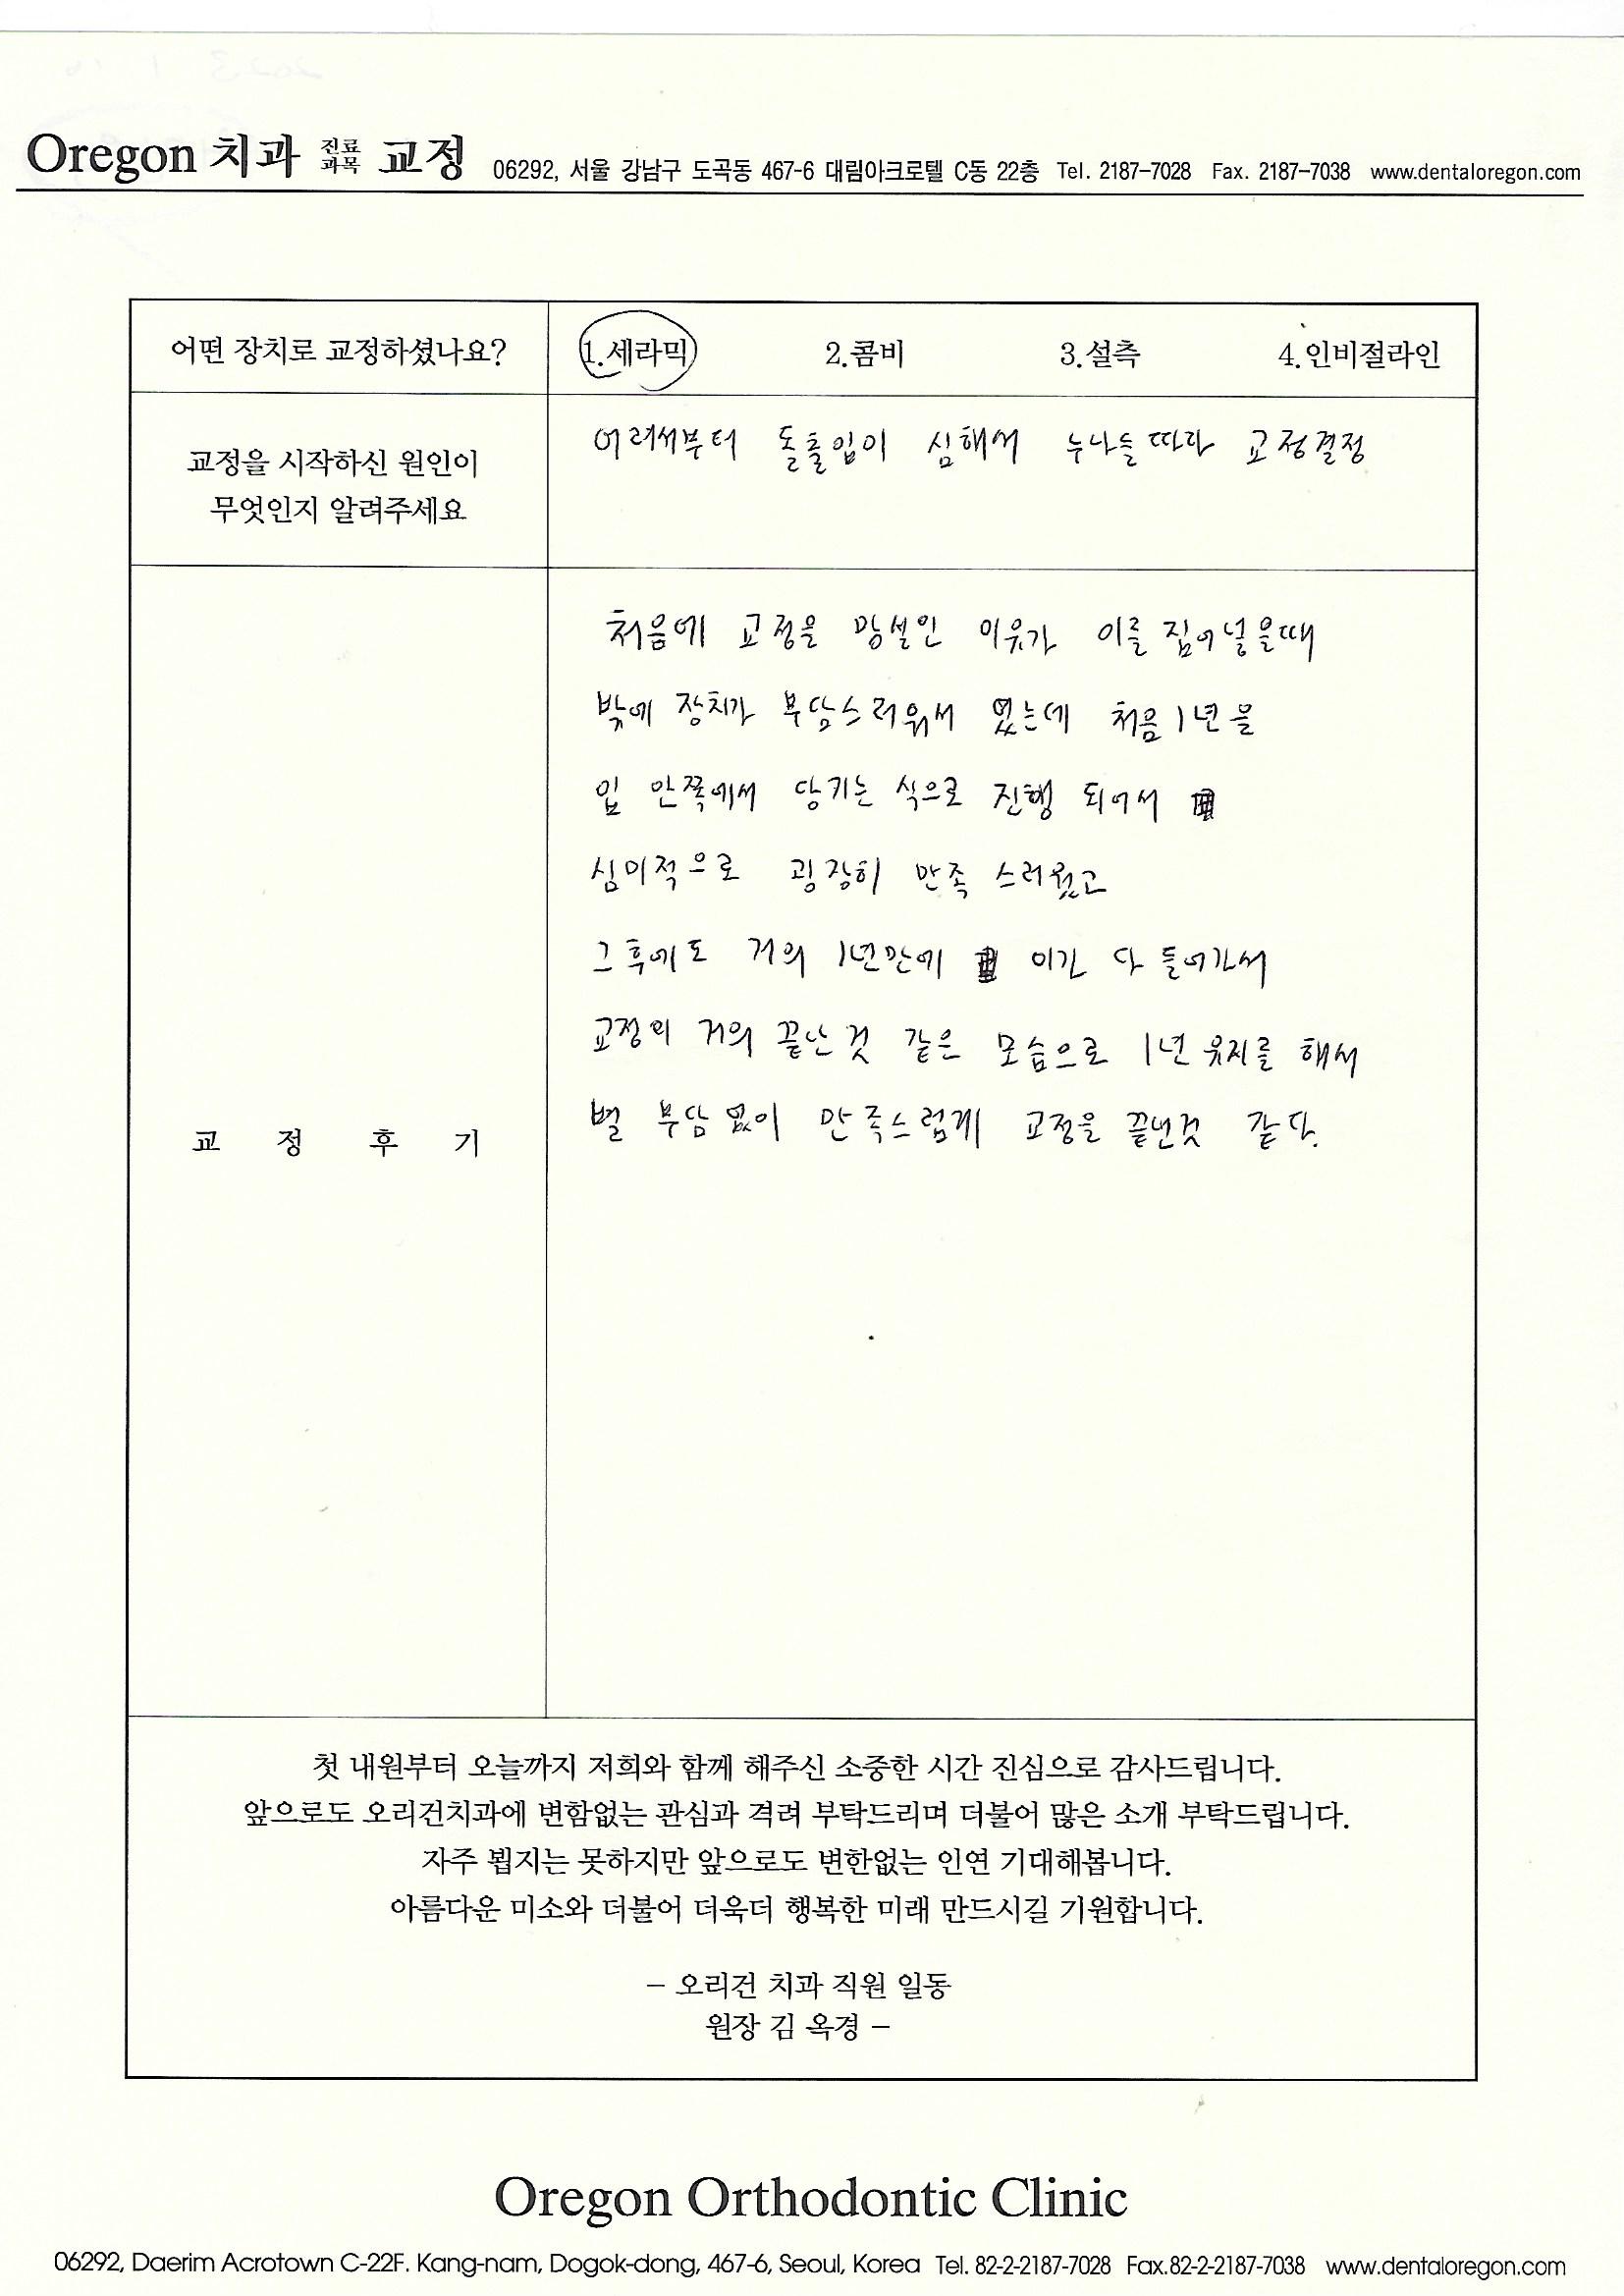 Oregon 치과 진료과목 교정 06292, 서울 강남구 도곡동 467-6 대림아크로텔 C동 22층 Tel. 2187-7028 Fax. 2187-7038 www.dentaloregon.com
어떤 장치로 교정하셨나요? 1.세라믹 2.콤비 3.설측 4.인비절라인
교정을 시작하신 원인이
무엇인지 알려주세요
어려서부터 돌출입이 심해서 누나들 따라 교정결정
교 정 후 기
처음에 교정을 망설인 이유가 이를 집어넣을때
밖에 장치가 부담스러워서 였는데 처음 1년을
입 안쪽에서 당기는 식으로 진행 되어서
심미적으로 굉장히 만족 스러웠고
그 후에도 거의 1년만에 이가 다 들어가서
교정이 거의 끝난것 같은 모습으로 1년 유지를 해서
별 부담 없이 만족스럽게 교정을 끝낸것 같다.
첫 내원부터 오늘까지 저희와 함께 해주신 소중한 시간 진심으로 감사드립니다.
앞으로도 오리건치과에 변함없는 관심과 격려 부탁드리며 더불어 많은 소개 부탁드립니다.
자주 뵙지는 못하지만 앞으로도 변한없는 인연 기대해봅니다.
아름다운 미소와 더불어 더욱더 행복한 미래 만드시길 기원합니다.
– 오리건 치과 직원 일동
원장 김 옥경 –
Oregon Orthodontic Clinic
06292, Daerim Acrotown C-22F. Kang-nam, Dogok-dong, 467-6, Seoul, Korea Tel. 82-2-2187-7028 Fax.82-2-2187-7038 www.dentaloregon.com